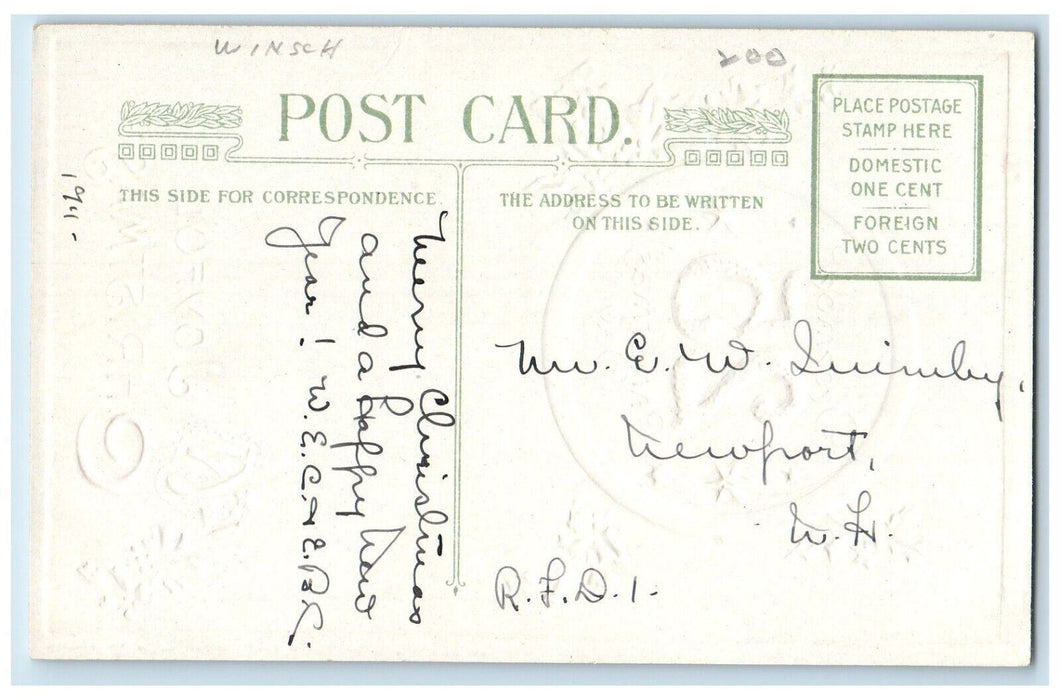 WINSCH
200
POST CARD.
PLACE POSTAGE
STAMP HERE
DOMESTIC
ONE CENT
FOREIGN
TWO CENTS
THIS SIDE FOR CORRESPONDENCE.
THE ADDRESS TO BE WRITTEN
ON THIS SIDE.
1911-
Merry Christmas
and a Happy New
Year! W.E.C. & E.B.C.
Mr. E. W. Quimby,
Newport,
N. H.
R.F.D. 1.